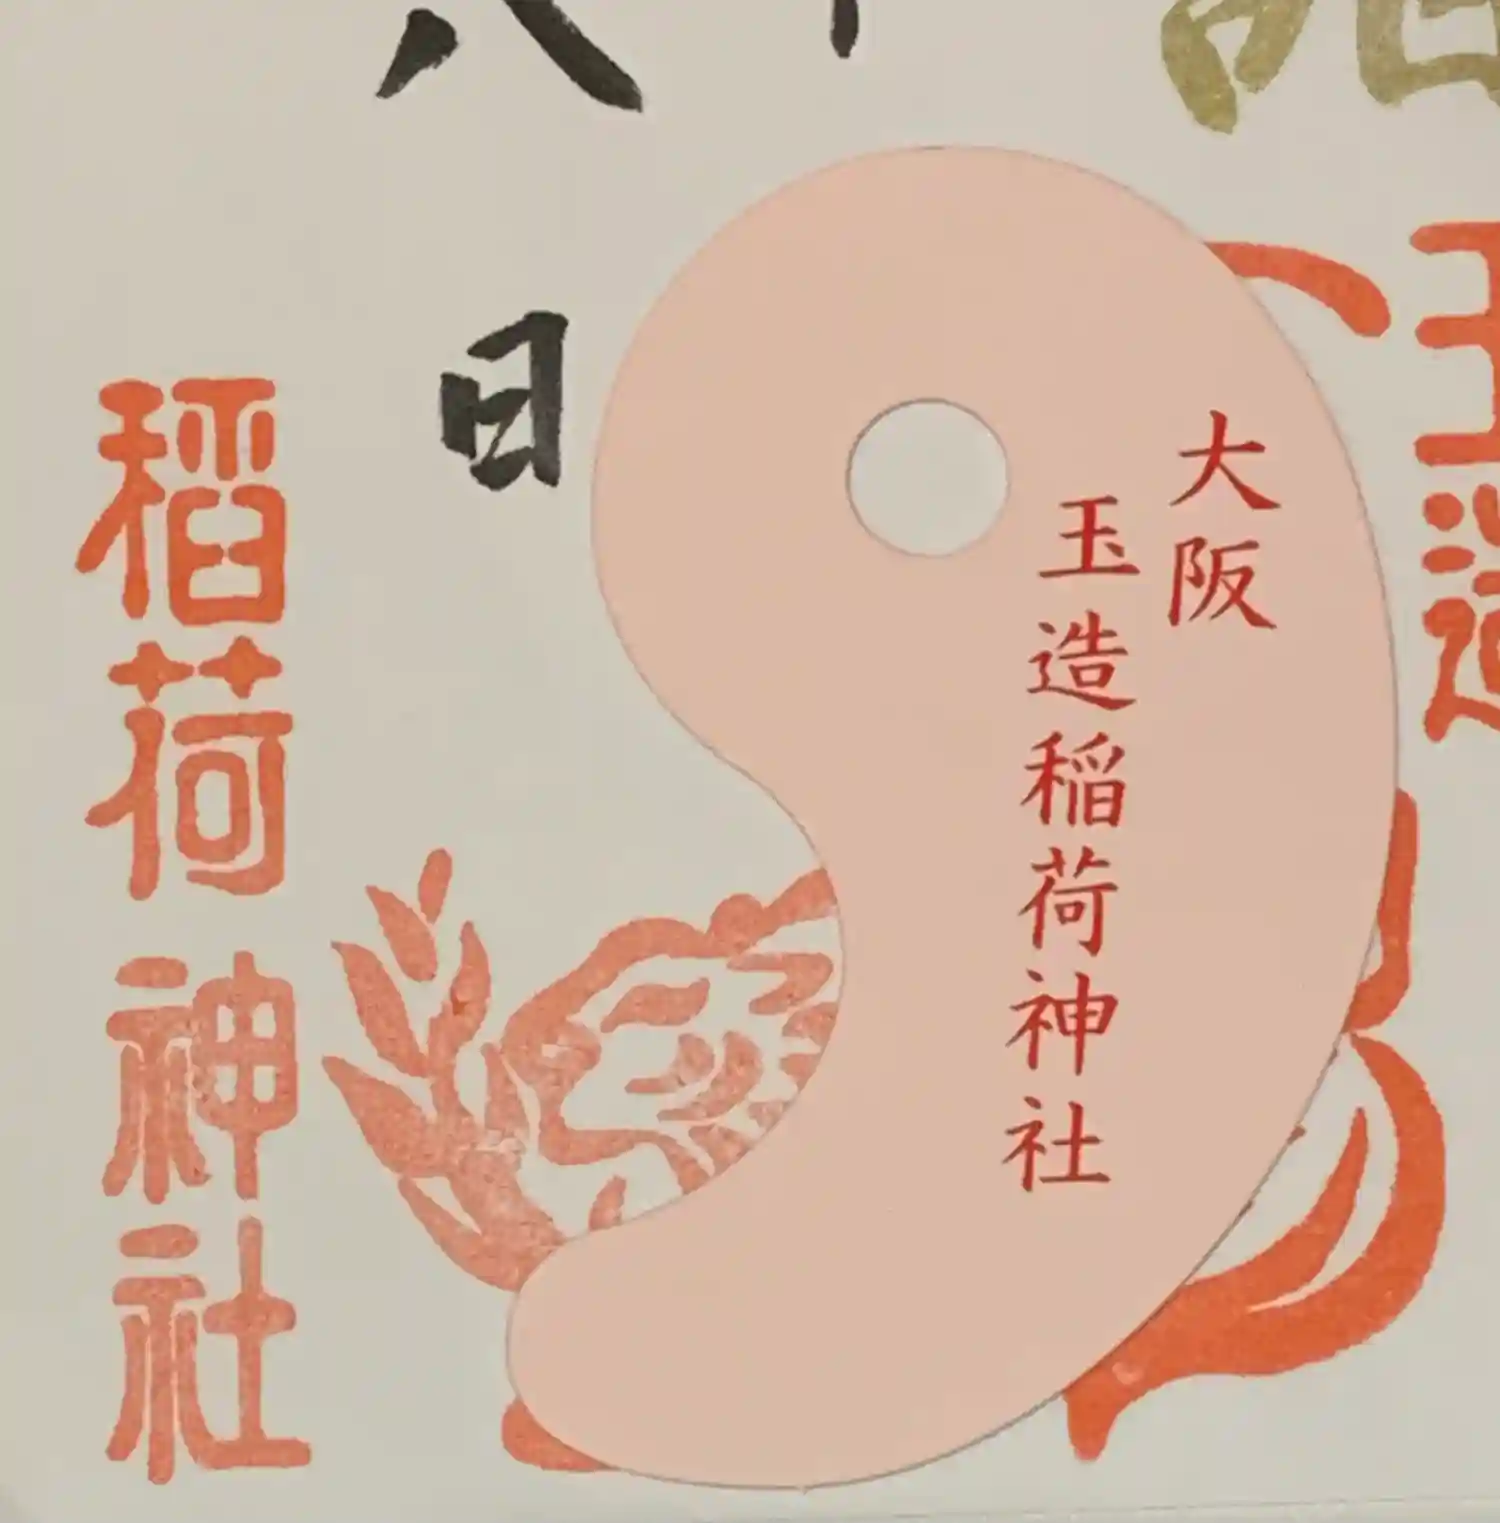 玉造
大阪
玉造稲荷神社
八日
稲荷神社